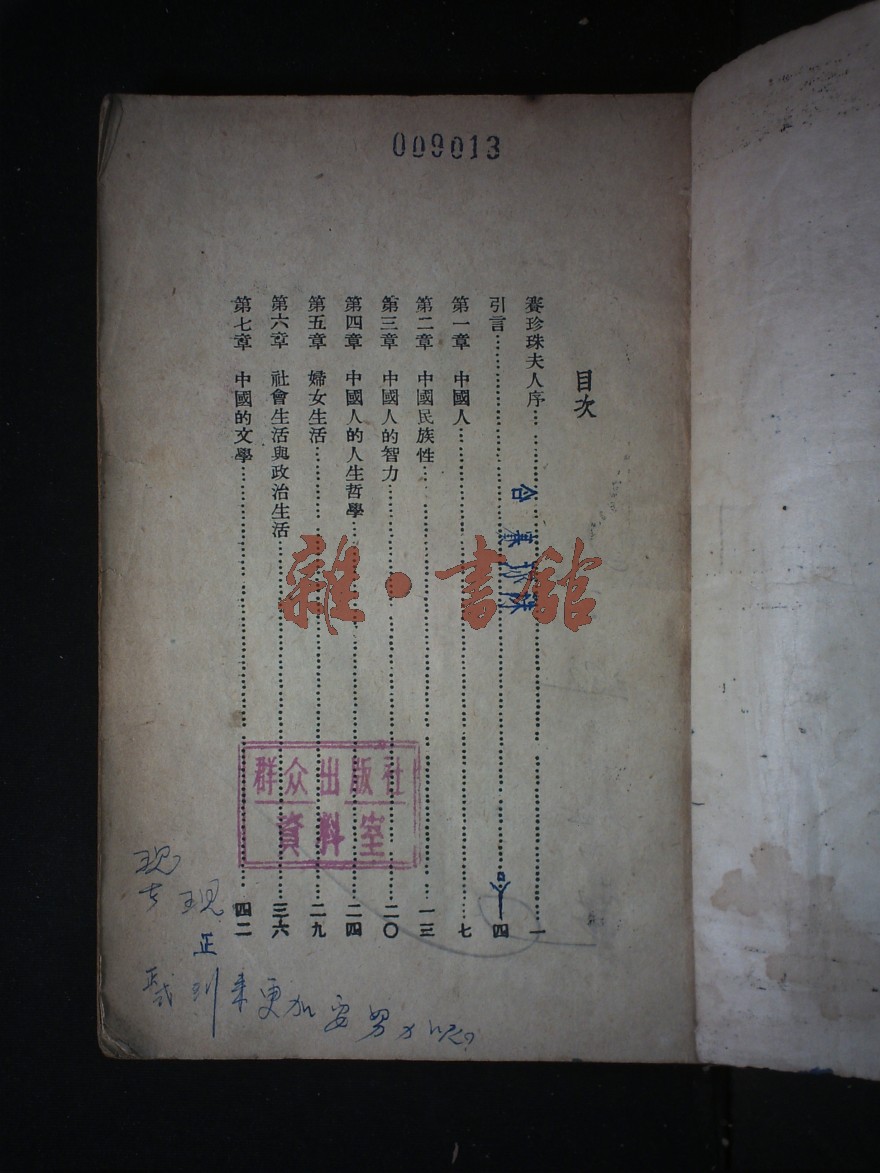 009013
目次
賽珍珠夫人序……一
引言……四
第一章 中國人……七
第二章 中國民族性……一三
第三章 中國人的智力……二〇
第四章 中國人的人生哲學……二四
第五章 婦女生活……二九
第六章 社會生活與政治生活……三六
第七章 中國的文學……四二
雜·書舘
群众出版社
資料室
现
现
正
更加
努力